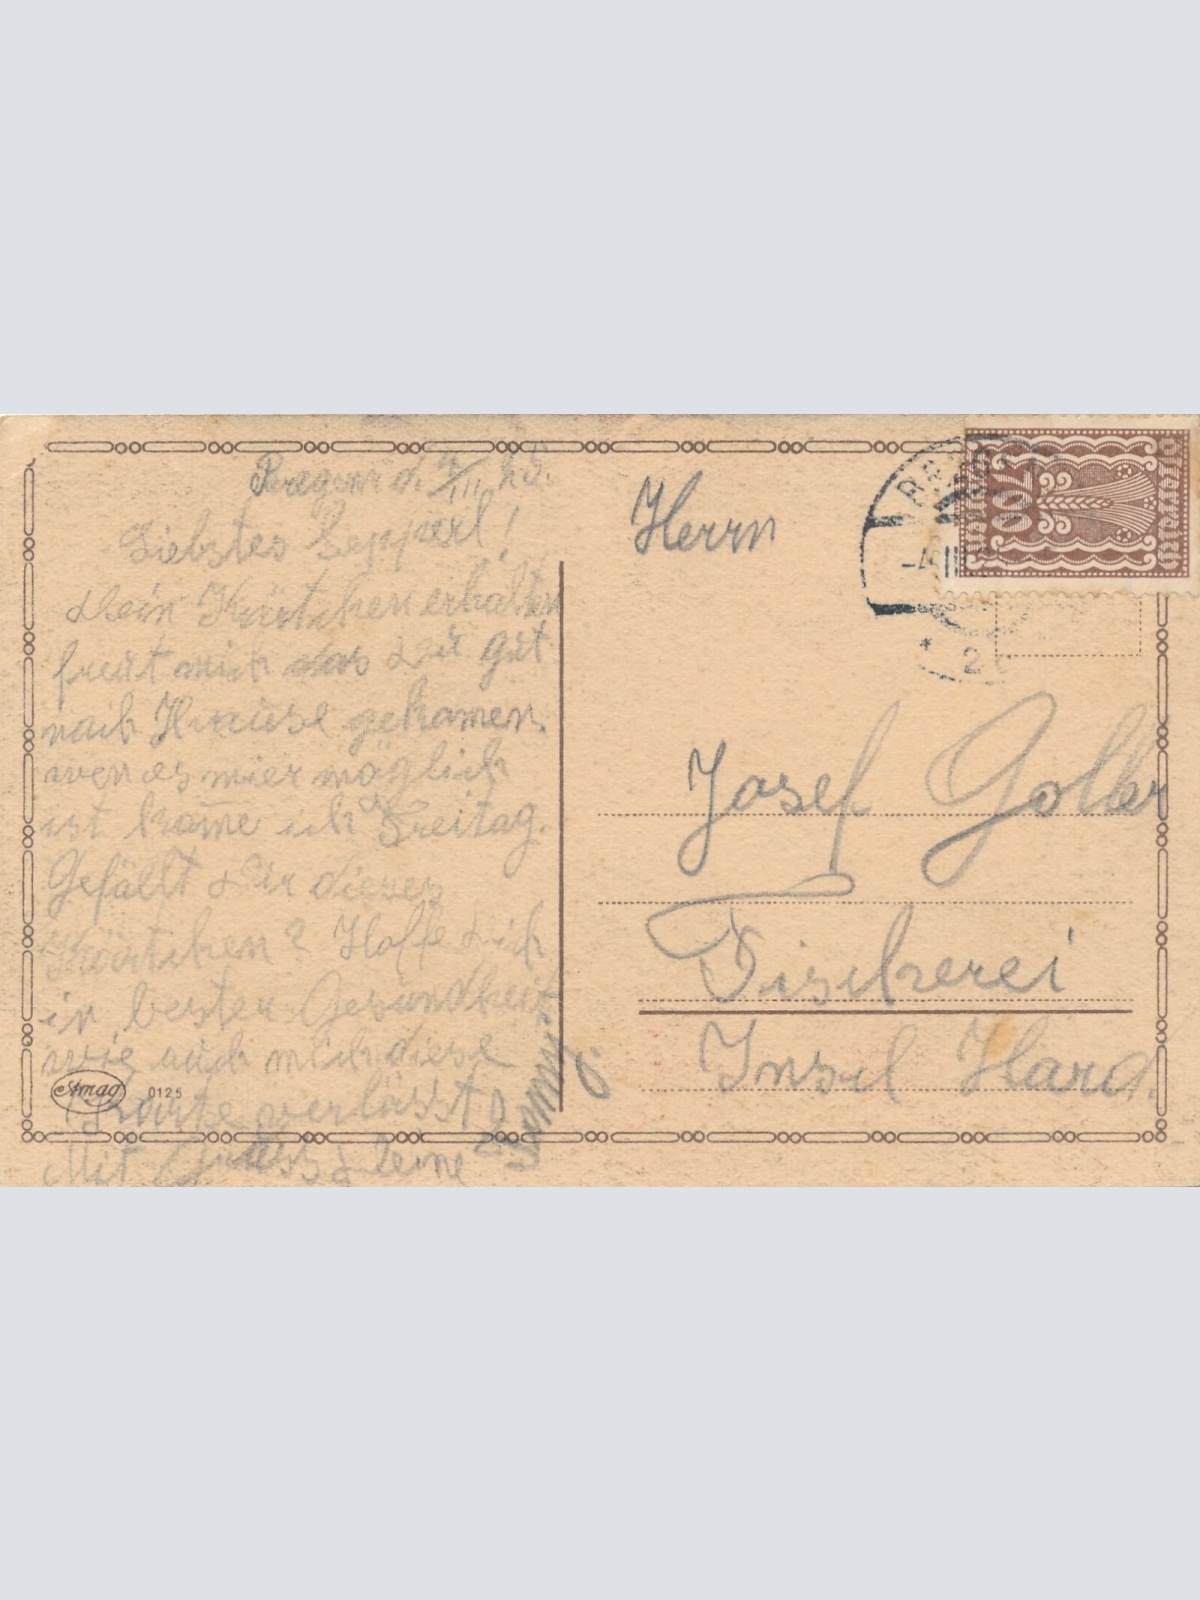 Bregenz d. 4/III. 23.
Liebstes Sepperl!
Dein Kärtchen erhalten
freut mich das Du gut
nach Hause gekomen.
wen es mier möglich
ist kome ich Freitag.
Gefällt Dir dieses
Kärtchen? Hoffe Dich
in bester Gesundheit
wie auch mich diese
Karte verlässt
Mit Gruss Deine
Amag 0125
Herrn
Josef Goller
Fischerei
Insel Hard.
BREG
-4.III
* 2c
200